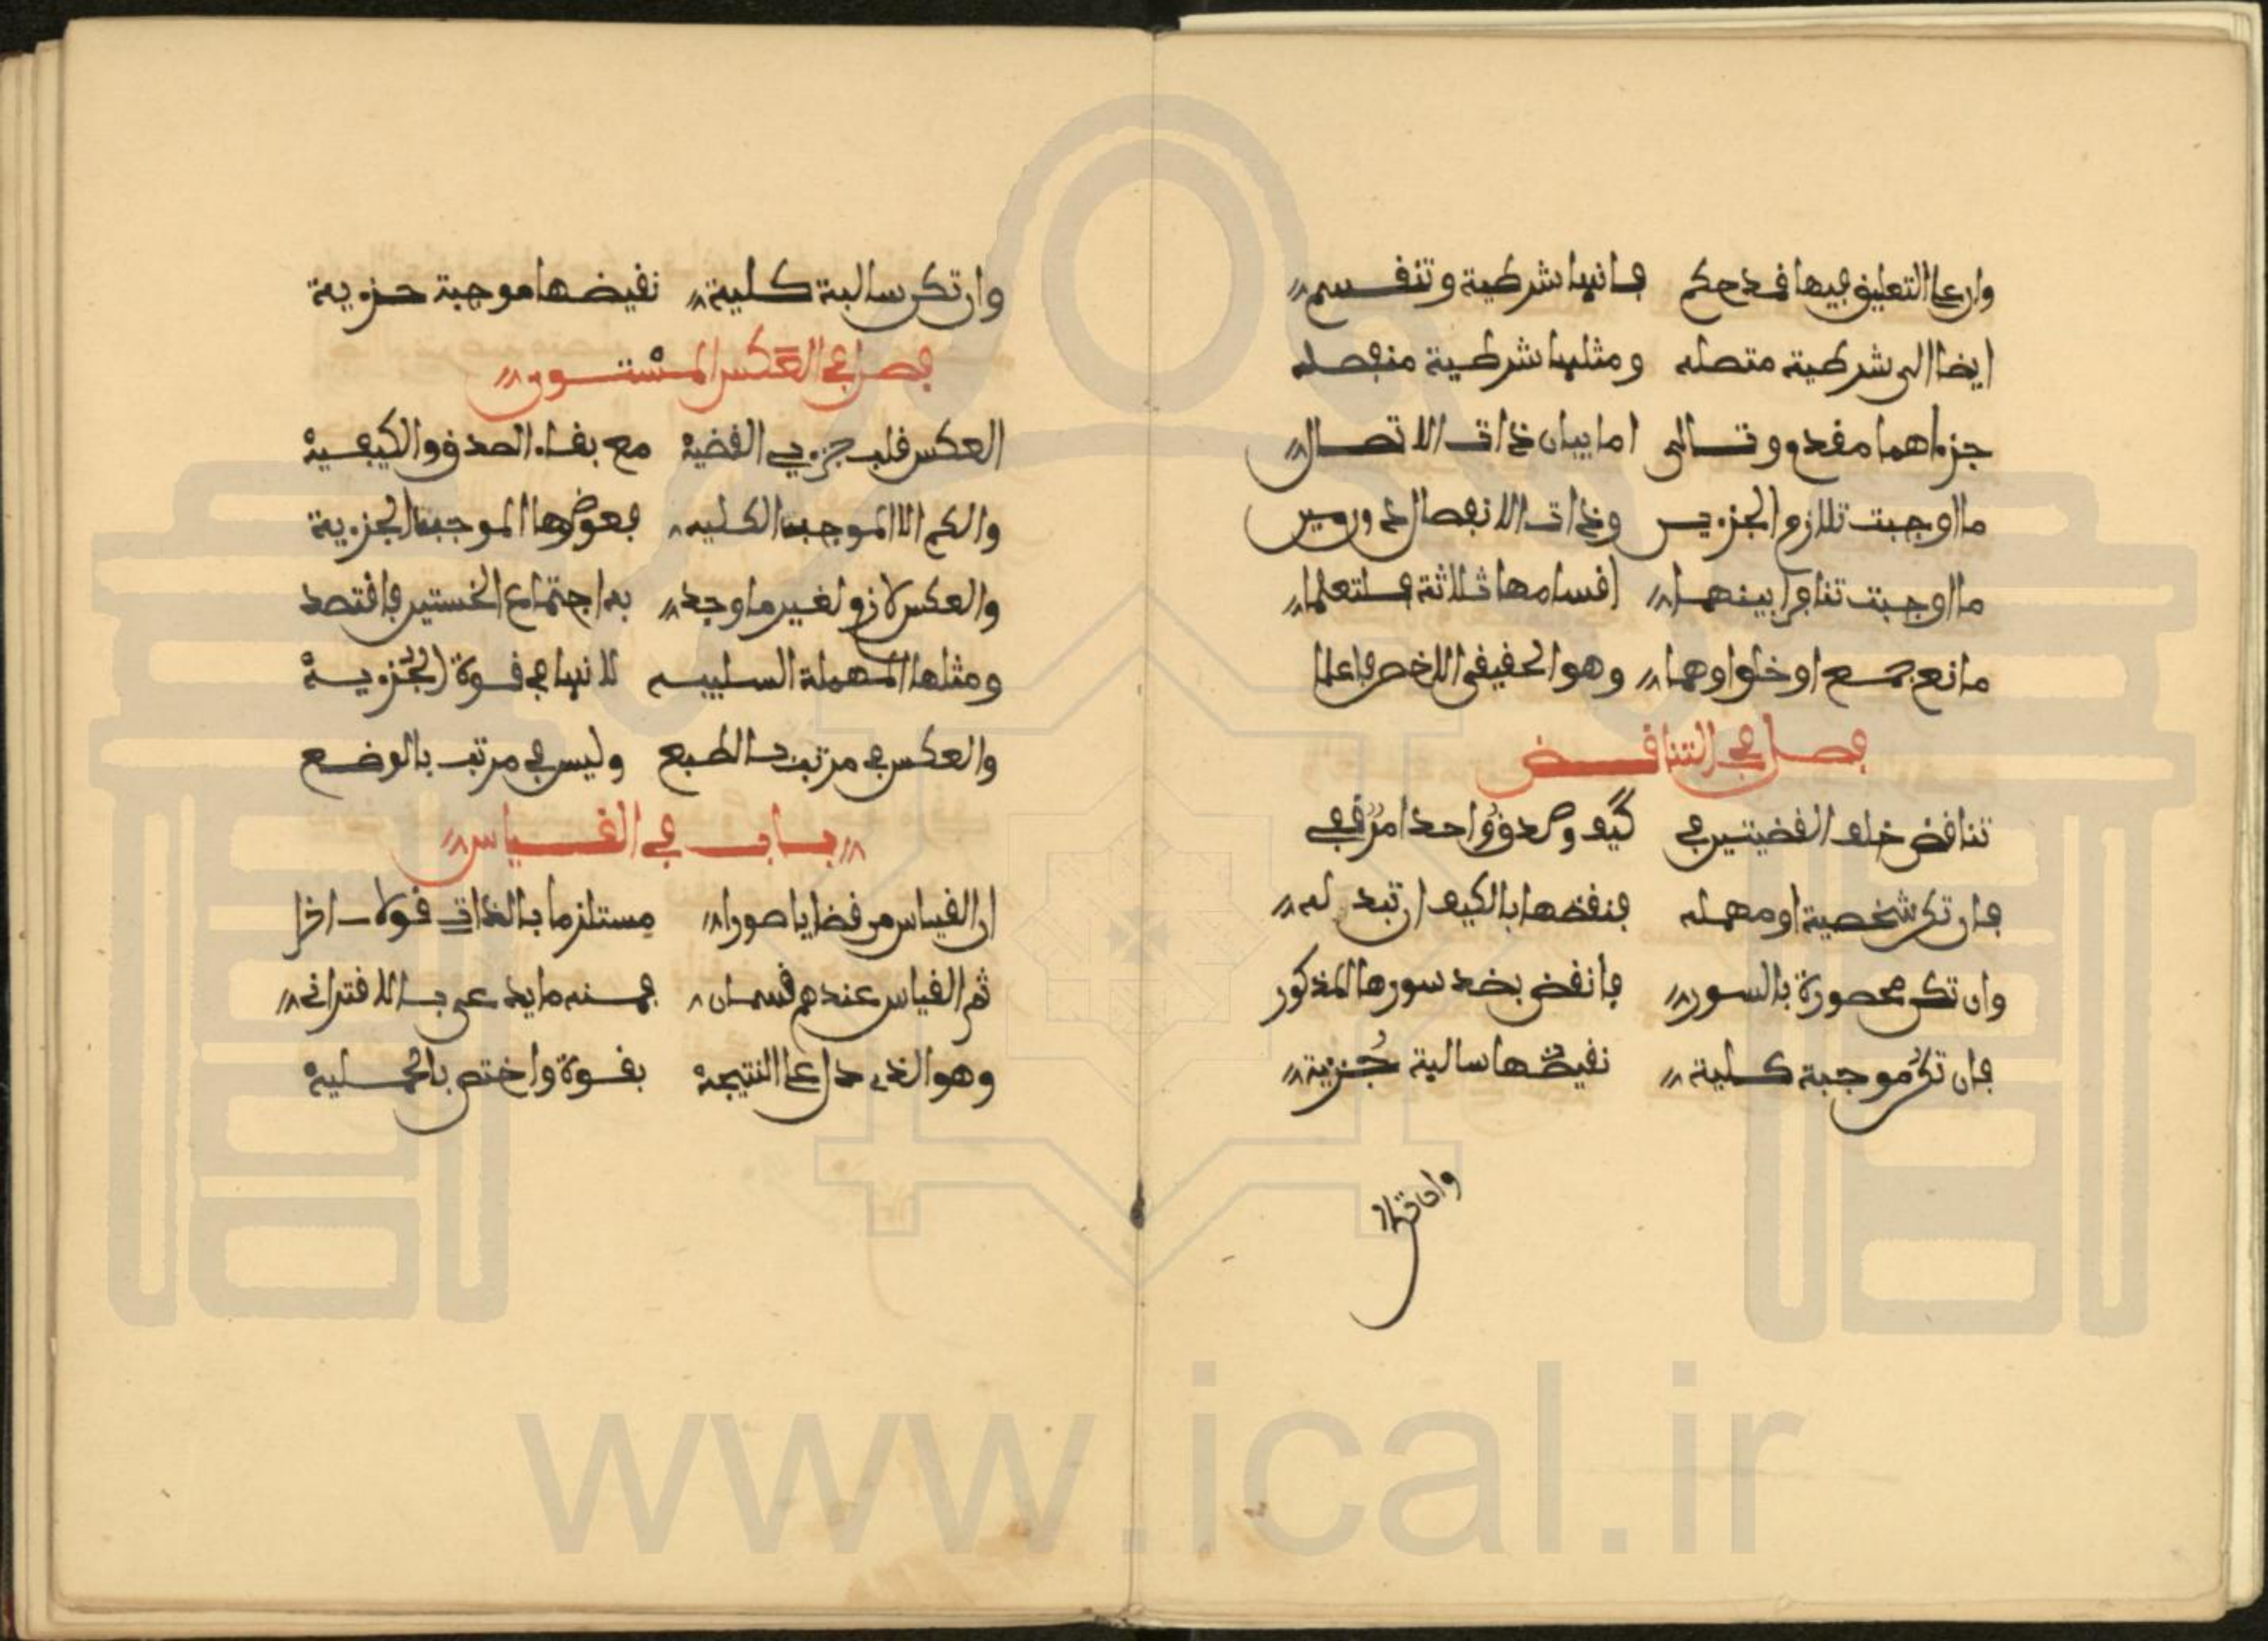 وان على التعليق فيها قد حكم فانها شرطية وتنقسم
ايضا الى شرطية متصله ومثلها شرطية منفصله
جزءاهما مقدم وتالى اما بيان ذات الاتصال
ما اوجبت تلازم الجزءين وذات الانفصال دون مين
ما اوجبت تنافرا بينهما اقسامها ثلاثة فلتعلما
مانع جمع او خلو اوهما وهو الحقيقى الاخص فاعلما
فصل فى التناقض
تناقض خلف القضيتين فى كيف وصدق واحد امر قفى
فان تكن شخصية او مهمله فنقضها بالكيف ان تبدله
وان تكن محصورة بالسور فانقض بضد سورها المذكور
فان تكن موجبة كلية نقيضها سالبة جزية
وان تكن
وان تكن سالبة كلية نقيضها موجبة جزءية
فصل فى العكس المستوى
العكس قلب جزءي القضية مع بقاء الصدق والكيفية
والكم الا الموجبة الكليه فعوضوها الموجبة الجزءية
والعكس لازم لغير ما وجد به اجتماع الخستين فاقتصد
ومثلها المهملة السلبيه لانها فى قوة الجزءية
والعكس فى مرتب بالطبع وليس فى مرتب بالوضع
باب فى القياس
ان القياس من قضايا صورا مستلزما بالذات قولا اخرا
ثم القياس عندهم قسمان فمنه ما يدعى بالاقترانى
وهو الذى دل على النتيجة بقوة واختص بالحملية
www.ical.ir